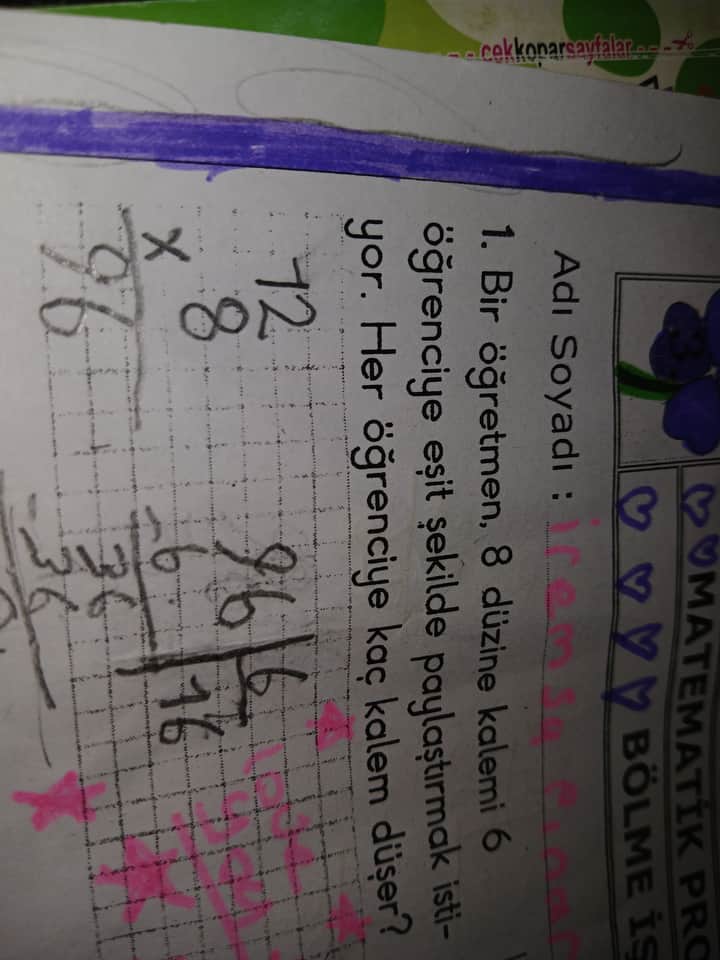 çekkoparsayfalar
MATEMATİK PRO
BÖLME İŞ
Adı Soyadı :
1. Bir öğretmen, 8 düzine kalemi 6
öğrenciye eşit şekilde paylaştırmak isti-
yor. Her öğrenciye kaç kalem düşer?
12
x 8
96
96 6
-6 16
36
-36
0